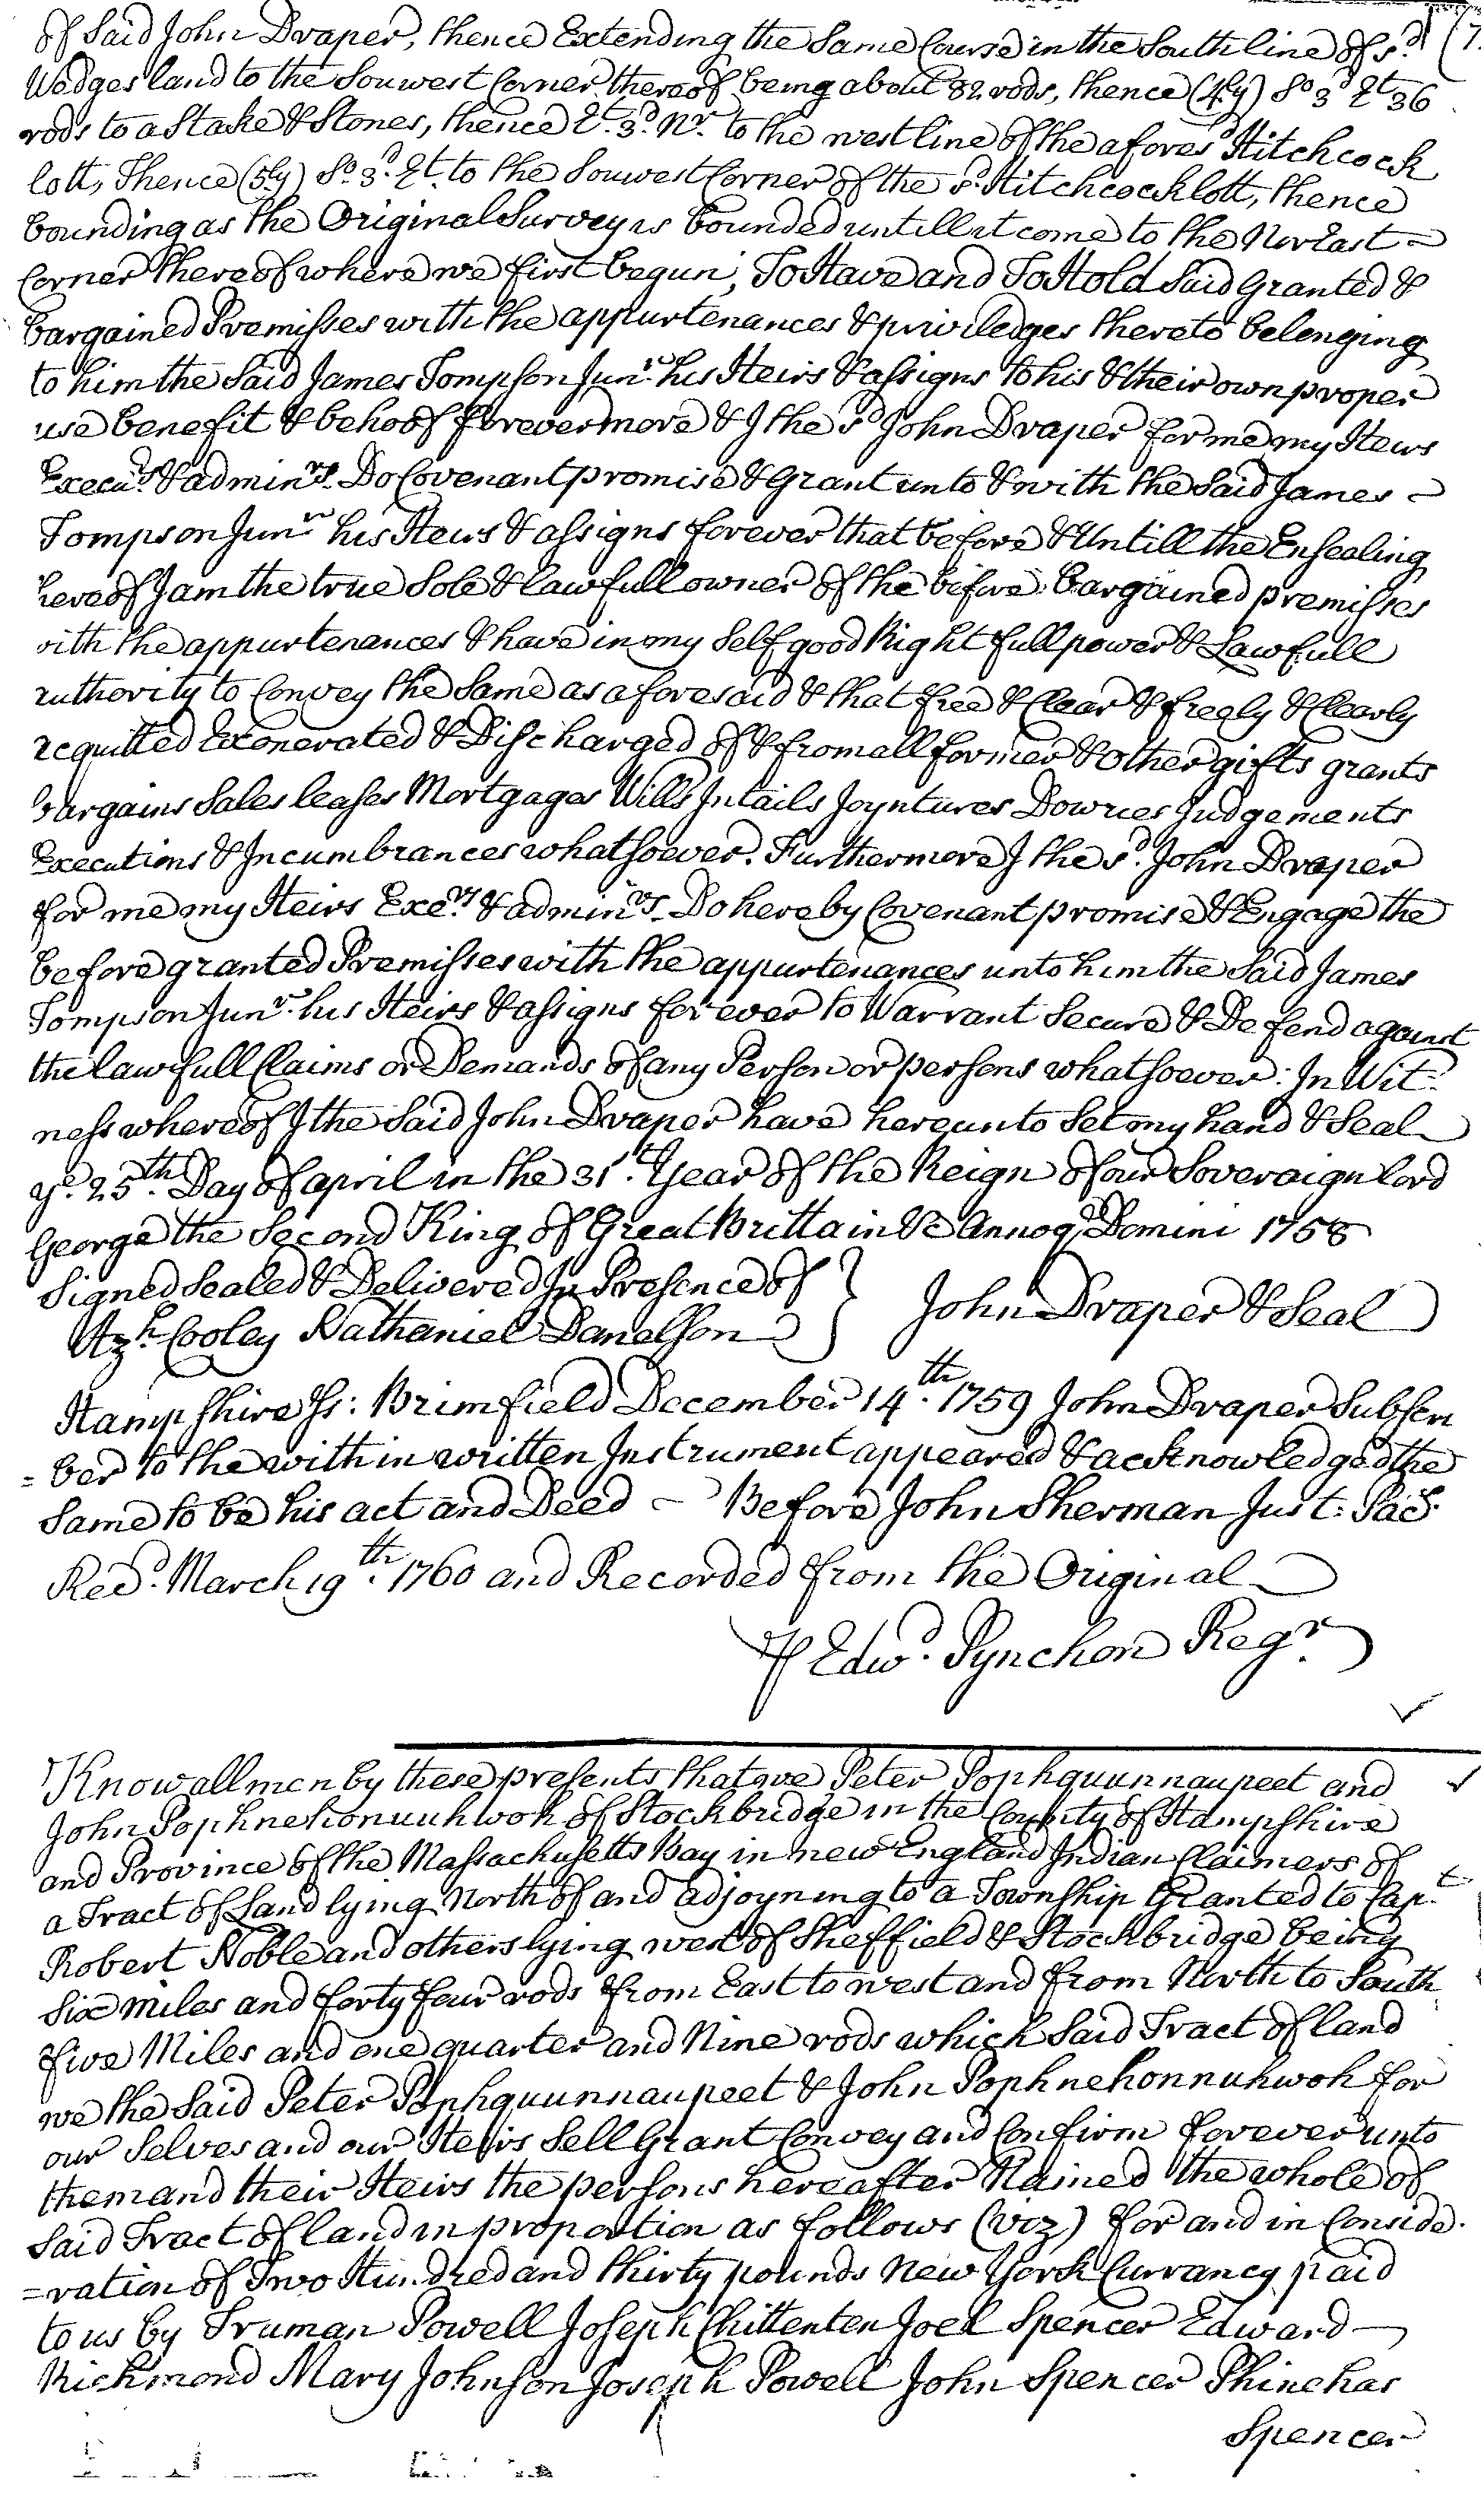 of Said John Draper, thence Extending the Same Course in the South line of sd
Wedges land to the Souwest Corner thereof being about 82 rods, thence (4ly) So 3d Et 36
rods to a Stake & Stones, thence Et. 3d. Nr. to the west line of the afores'd Hitchcock
lott, Thence (5ly) So. 3d. Et. to the Souwest Corner of the sd. Hitchcock lott, thence
bounding as the Original Survey is bounded untill it come to the Nor East =
Corner thereof where we first begun, To Have and To Hold Said Granted &
bargained Premisses with the appurtenances & priviledges thereto belonging
to him the Said James Tompson Junr. his Heirs & assigns to his & their own proper
use benefit & behoof forevermore & I the sd John Draper for me my Heirs
Execu.rs & admin.rs Do Covenant promise & Grant unto & with the Said James ~
Tompson Junr his Heirs & assigns forever that before & Untill the Ensealing
hereof I am the true Sole & lawfull owner of the before bargained premisses
with the appurtenances & have in my Self good Right full power & Lawfull
authority to Convey the Same as aforesaid & that free & Clear & freely & Clearly
acquitted Exonerated & Discharged of & from all former & other gifts grants
bargains Sales leases Mortgages Wills Intails Joyntures Dowries Judgements
Executions & Incumbrances whatsoever. Furthermore I the sd. John Draper
for me my Heirs Exe.rs & admin.rs Do hereby Covenant promise & Engage the
before granted Premisses with the appurtenances unto him the Said James
Tompson Junr. his Heirs & assigns forever to Warrant Secure & Defend against
the lawfull Claims or Demands of any Person or persons whatsoever. In Wit=
ness whereof I the Said John Draper have hereunto Set my hand & Seal
ye. 25th. Day of april in the 31st. Year of the Reign of our Soveraign lord
George the Second King of Great Brittain &c Annoq Domini 1758
Signed Sealed & Delivered In Presence of } John Draper & Seal
Azh. Cooley Nathaniel Danelson
Hampshire Ss: Brimfield December 14th. 1759 John Draper Subscri
=ber to the within written Instrument appeared & acknowledged the
Same to be his act and Deed ~ Before John Sherman Just: Pac.
Recd. March 19th. 1760 and Recorded from the Original
P Edwd. Pynchon Regr.
Know all men by these presents that we Peter Pophquunnaupeet and
John Pophnehonuuhwoh of Stockbridge in the County of Hampshire
and Province of the Massachusetts Bay in new England Indian Claimers of
a Tract of Land lying North of and adjoyning to a Township Granted to Capt.
Robert Noble and others lying west of Sheffield & Stockbridge being
Six miles and forty four rods from East to west and from North to South
five Miles and one quarter and Nine rods which Said Tract of land
we the Said Peter Pophquunnaupeet & John Pophnehonnuhwoh for
our Selves and our Heirs Sell Grant Convey and Confirm forever unto
them and their Heirs the persons hereafter Named the whole of
Said Tract of land in proportion as follows (viz) for and in Conside.
=ration of Two Hundred and thirty pounds New York Currancy paid
to us by Truman Powell Joseph Chittenten Joel Spencer Edward
Richmond Mary Johnson Joseph Powell John Spencer Phinehas
Spencer